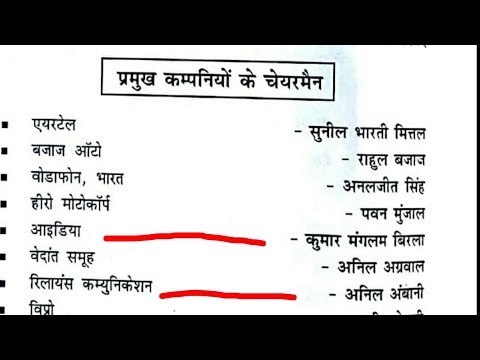 प्रमुख कम्पनियों के चेयरमैन
▪ एयरटेल - सुनील भारती मित्तल
▪ बजाज ऑटो - राहुल बजाज
▪ वोडाफोन, भारत - अनलजीत सिंह
▪ हीरो मोटोकॉर्प - पवन मुंजाल
▪ आइडिया - कुमार मंगलम बिरला
▪ वेदांत समूह - अनिल अग्रवाल
▪ रिलायंस कम्युनिकेशन - अनिल अंबानी
▪ विप्रो